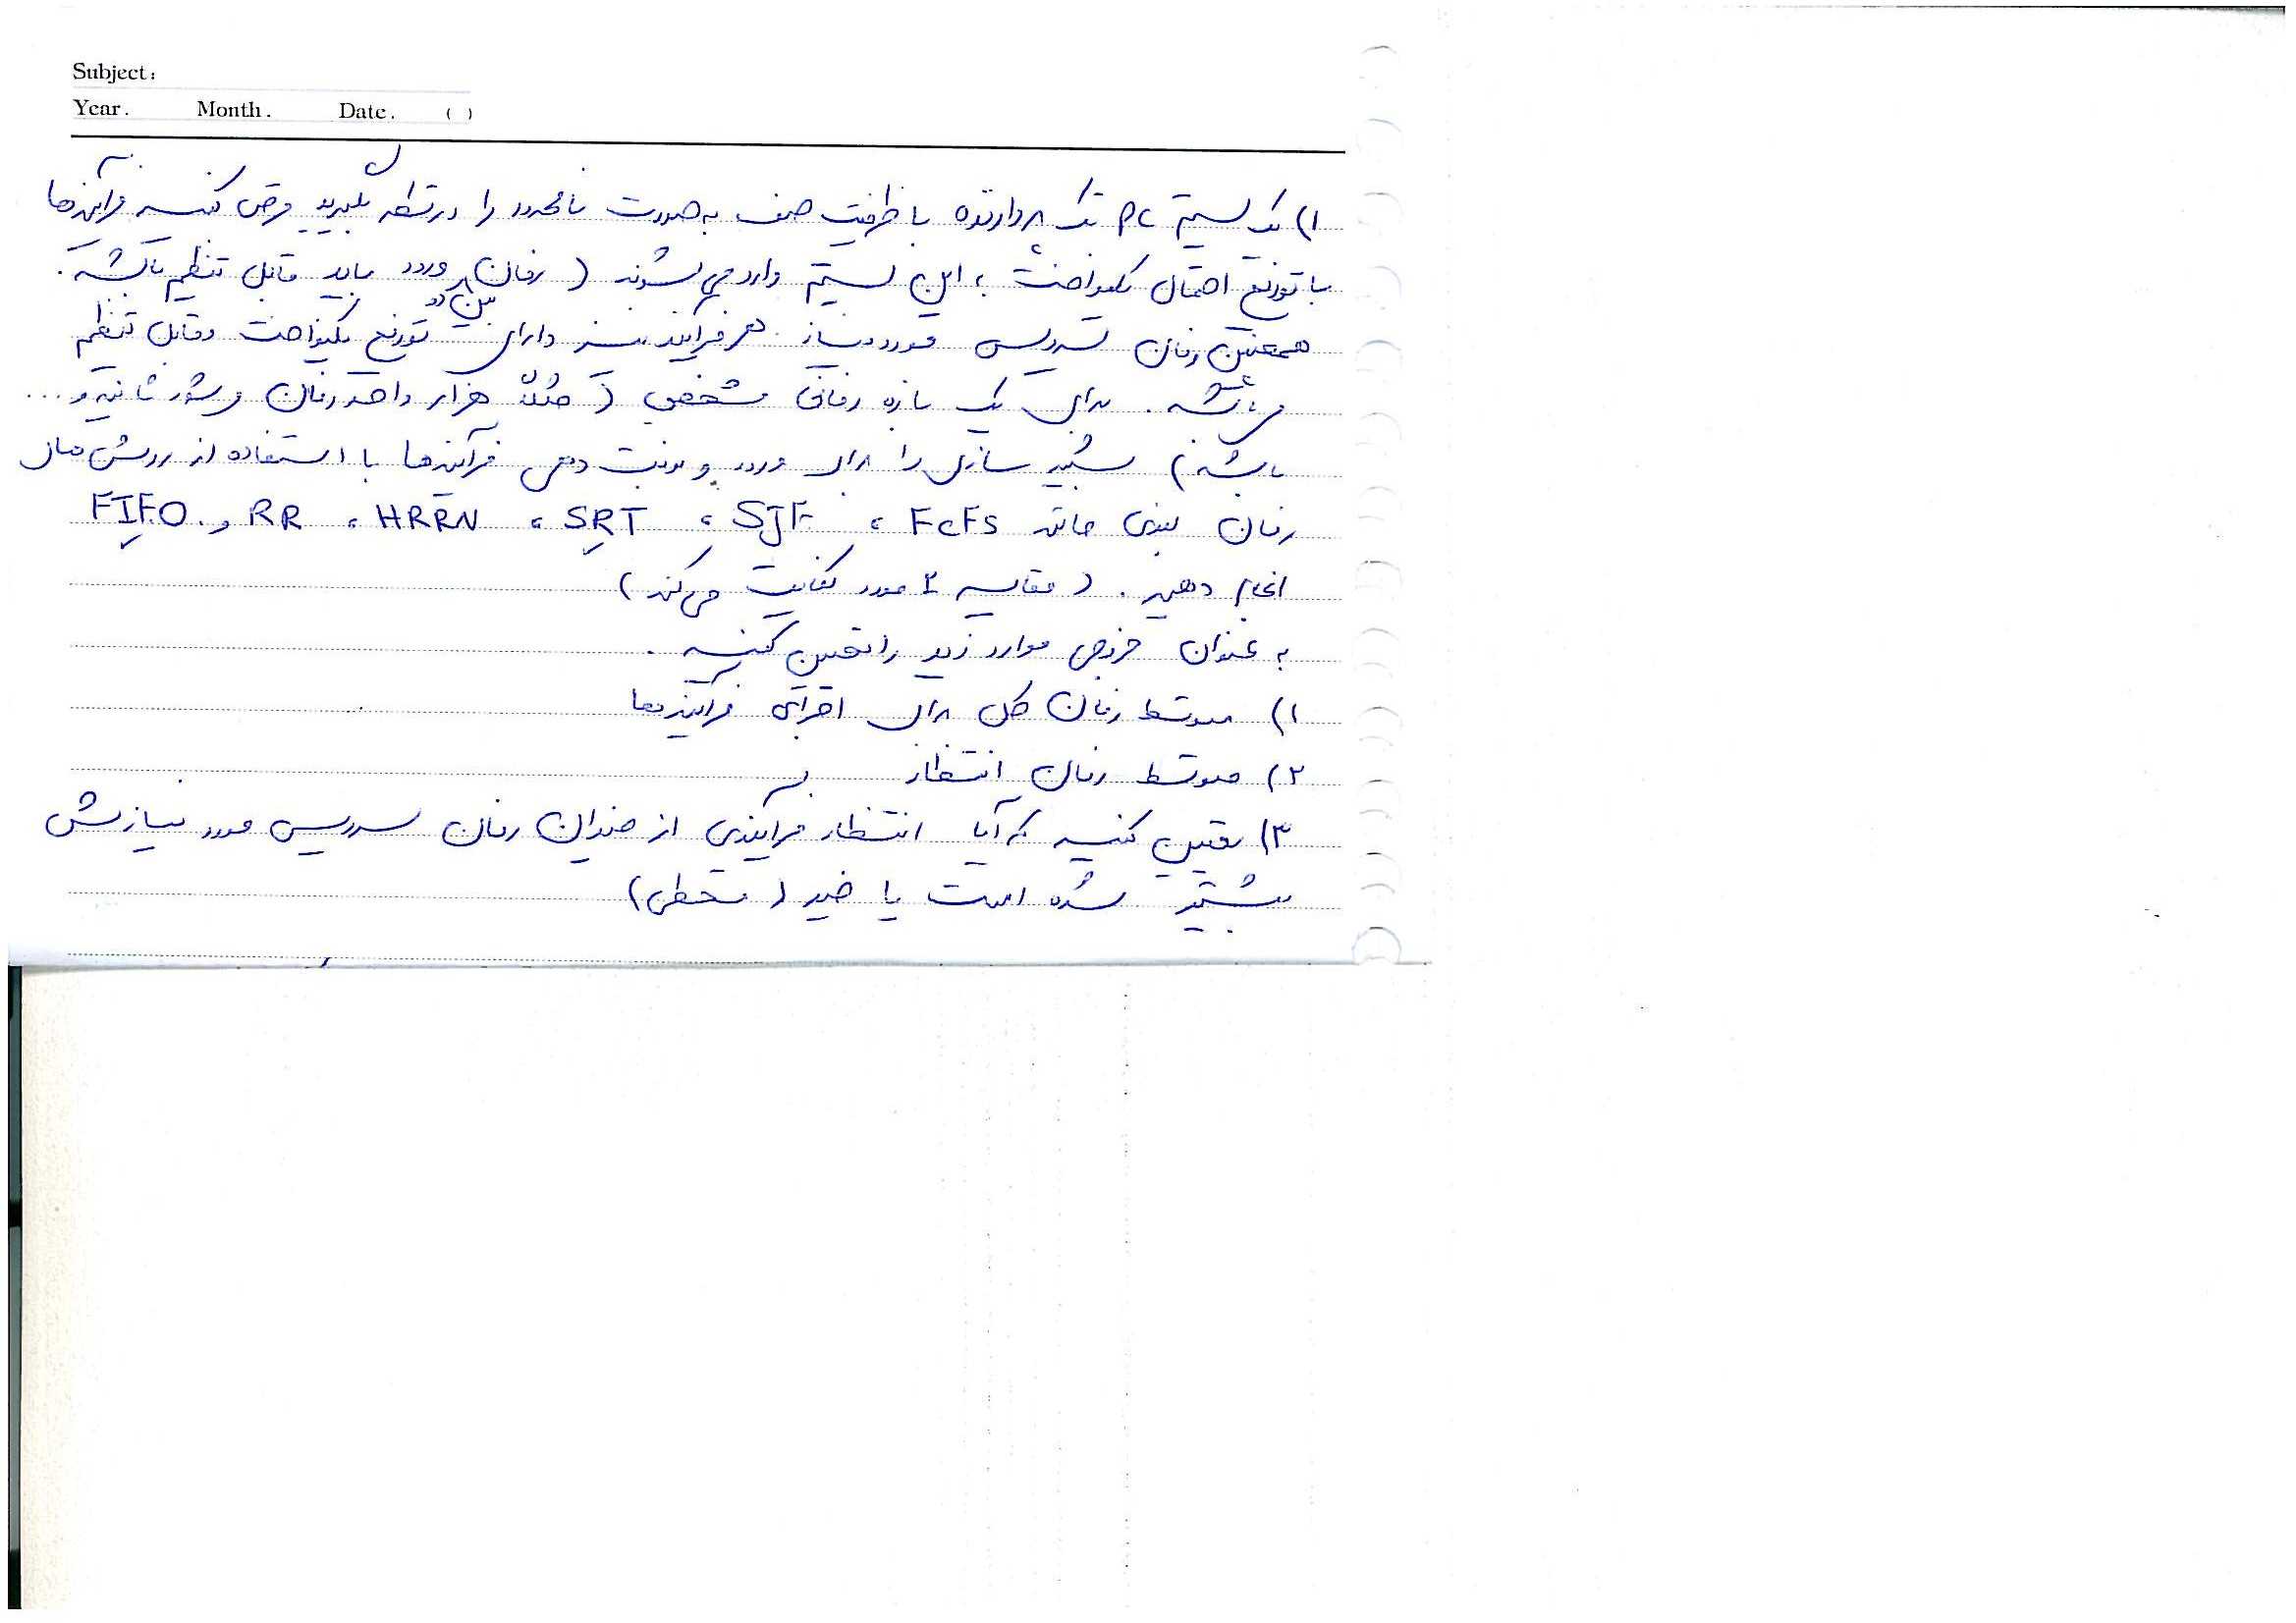 Subject:
Year. Month. Date. ( )
۱) یک سیستم PC تک پردازنده با ظرفیت صف به صورت نامحدود را در نظر بگیرید فرض کنید فرآیندها
با توزیع احتمال یکنواخت به این سیستم وارد می شوند ( زمان بین دو ورود باید قابل تنظیم باشد.
همچنین زمان سرویس مورد نیاز هر فرآیند نیز دارای توزیع یکنواخت و قابل تنظیم
می باشد. برای یک بازه زمانی مشخص ( مثلاً هزار واحد زمان ثانیه و ...
باشد) شبیه سازی را برای ورود و نوبت دهی فرآیندها با استفاده از روش های
زمان بندی مانند FCFS ، SJF ، SRT ، HRRN ، RR و FIFO
انجام دهید. ( مقایسه ۲ مورد کفایت می کند)
به عنوان خروجی موارد زیر را تعیین کنید.
۱) متوسط زمان کل برای اجرای فرآیندها
۲) متوسط زمان انتظار
۳) تعیین کنید که آیا انتظار فرآیندی از چندان زمان سرویس مورد نیازش
بیشتر شده است یا خیر ( قحطی)